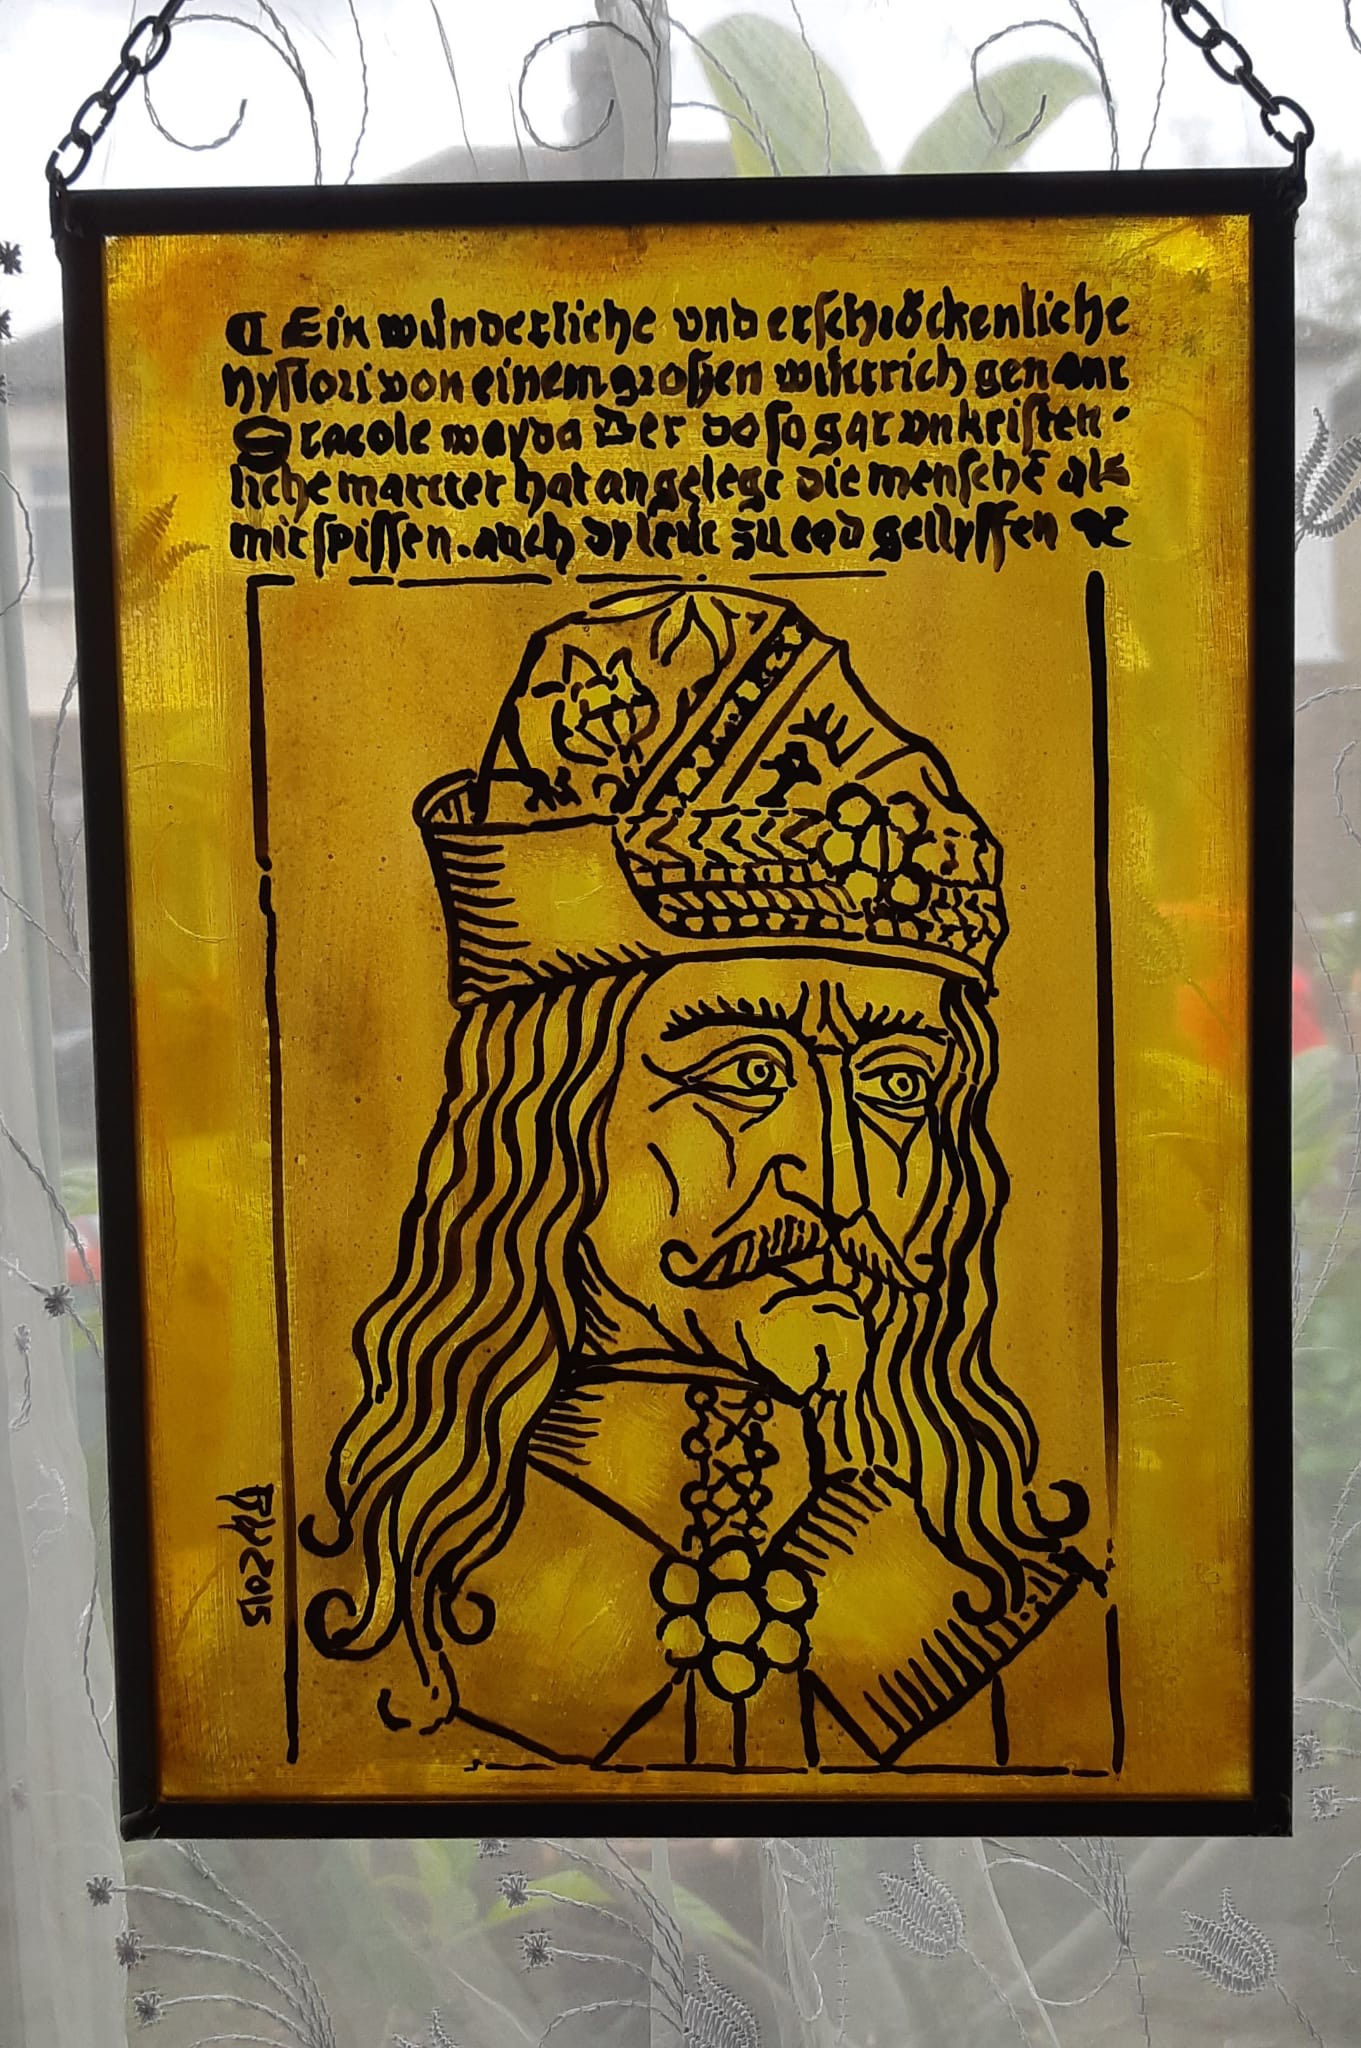 Ein wunderliche vnd erschröckenliche
hystori von einem großen wüttrich genant
Dracole wayda Der do so gar vnkristen-
liche martter hat angelegt die menschē als
mit spissen. auch dy leut zu tod gellyssen ꝛc